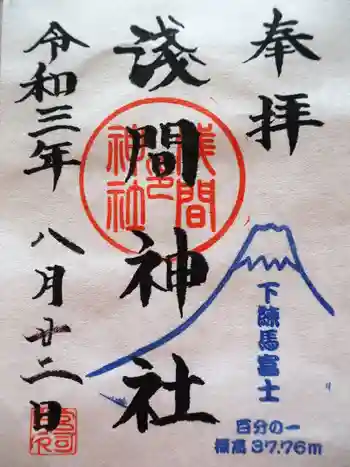 奉拝
淺間神社
令和三年 八月廿二日
浅間
神社
下練馬富士
百分の一
標高37.76m